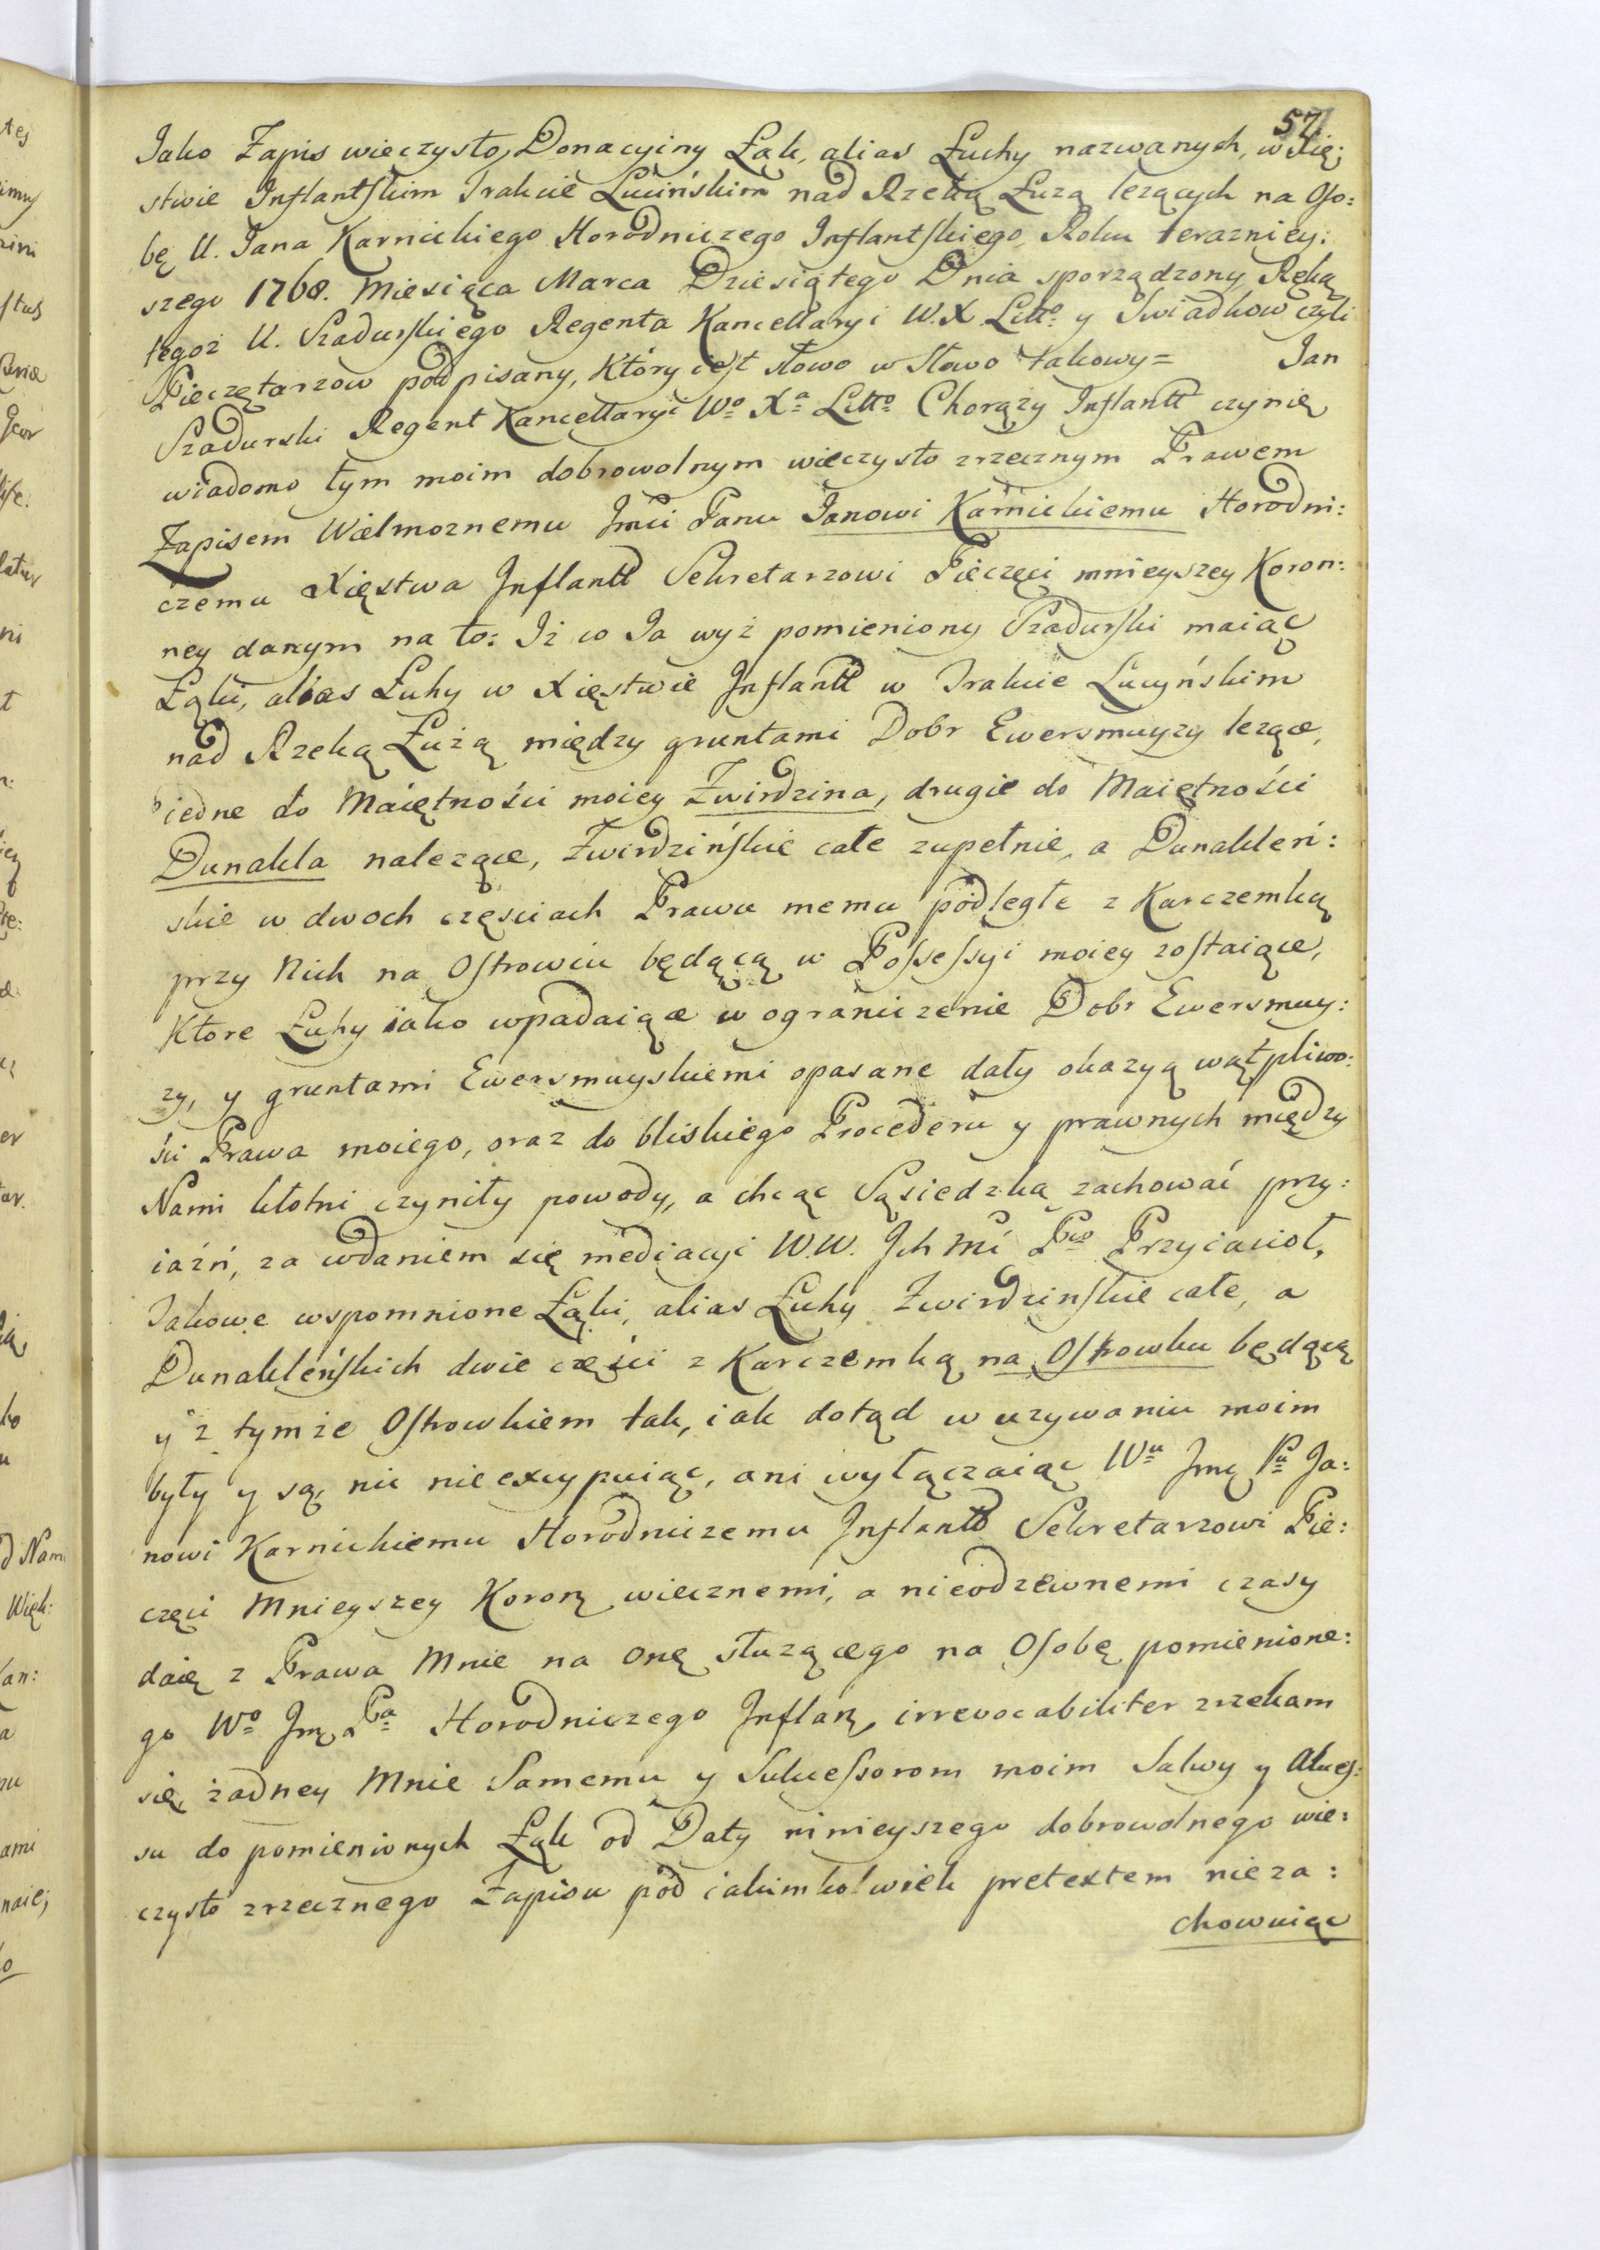 57
Jako Zapis wieczysto Donacyiny Łąk, alias Łuchy nazwanych, w Xię:
stwie Inflantskim Trakcie Lucińskim nad Rzeką Łuzą lezących na Oso:
bę U. Jana Karnickiego Horodniczego Inflantskiego, Roku terazniey:
szego 1768. Miesiąca Marca Dziesiątego Dnia sporządzony, Ręką
tegoż U. Szadurskiego Regenta Kancellaryi W. X. Litt: y Swiadkow czyli
Pieczętarzow podpisany, Który iest słowo w słowo takowy = Jan
Szadurski Regent Kancellaryi Wo Xa Litto Chorąży Inflantt czynię
wiadomo tym moim dobrowolnym wieczysto zrzecznym Prawem
Zapisem Wielmoznemu Jmci Panu Janowi Karnickiemu Horodni:
czemu Xięstwa Inflantt Sekretarzowi Pieczęci mnieyszey Koron:
ney danym na to: Iż co Ja wyż pomieniony Szadurski maiąc
Łąki, alias Łuhy w Xięstwie Inflantt w Trakcie Lucyńskim
nad Rzeką Łużą między gruntami Dobr Ewersmuyzy lezące,
iedne do Maiętności moiey Zwirdzina, drugie do Maiętności
Dunakla nalezące, Zwirdzińskie całe zupełnie, a Dunakleń:
skie w dwoch częsciach Prawu memu podległe z Karczemką
przy Nich na Ostrowiu będącą w Possessyi moiey zostaiące,
Ktore Łuhy iako wpadaiące w ograniczenie Dobr Ewersmuy:
zy, y gruntami Ewersmuyskiemi opasane dały okazyą wątpliwo:
ści Prawa moiego, oraz do bliskiego Procederu y prawnych między
Nami kłotni czyniły powody, a chcąc Sąsiedzką zachować przy:
iaźń, za wdaniem się mediacyi W.W. Ich Mć Pow Przyiacioł,
Takowe wspomnione Łąki, alias Łuhy Zwirdzinskie całe, a
Dunakleńskich dwie części z Karczemką na Ostrowku będącą
y z tymże Ostrowkiem tak, iak dotąd w uzywaniu moim
były y są, nic nie excypuiąc, ani wyłączaiąc Wu Jmę Pu Ja:
nowi Karnickiemu Horodniczemu Inflantt Sekretarzowi Pie:
częci Mnieyszey Koron wiecznemi, a nieodzewnemi czasy
daię z Prawa Mnie na onę słuząącego na Osobę pomienione:
go Wo Jmę Pa Horodniczego Inflan, irrevocabiliter zrzekam
się, żadney Mnie Samemu y Sukcessorom moim Salwy y Akces:
su do pomienionych Łąk od Daty ninieyszego dobrowolnego wie:
czysto zrzecznego Zapisu pod iakimkolwiek pretextem nie za:
chowuiąc